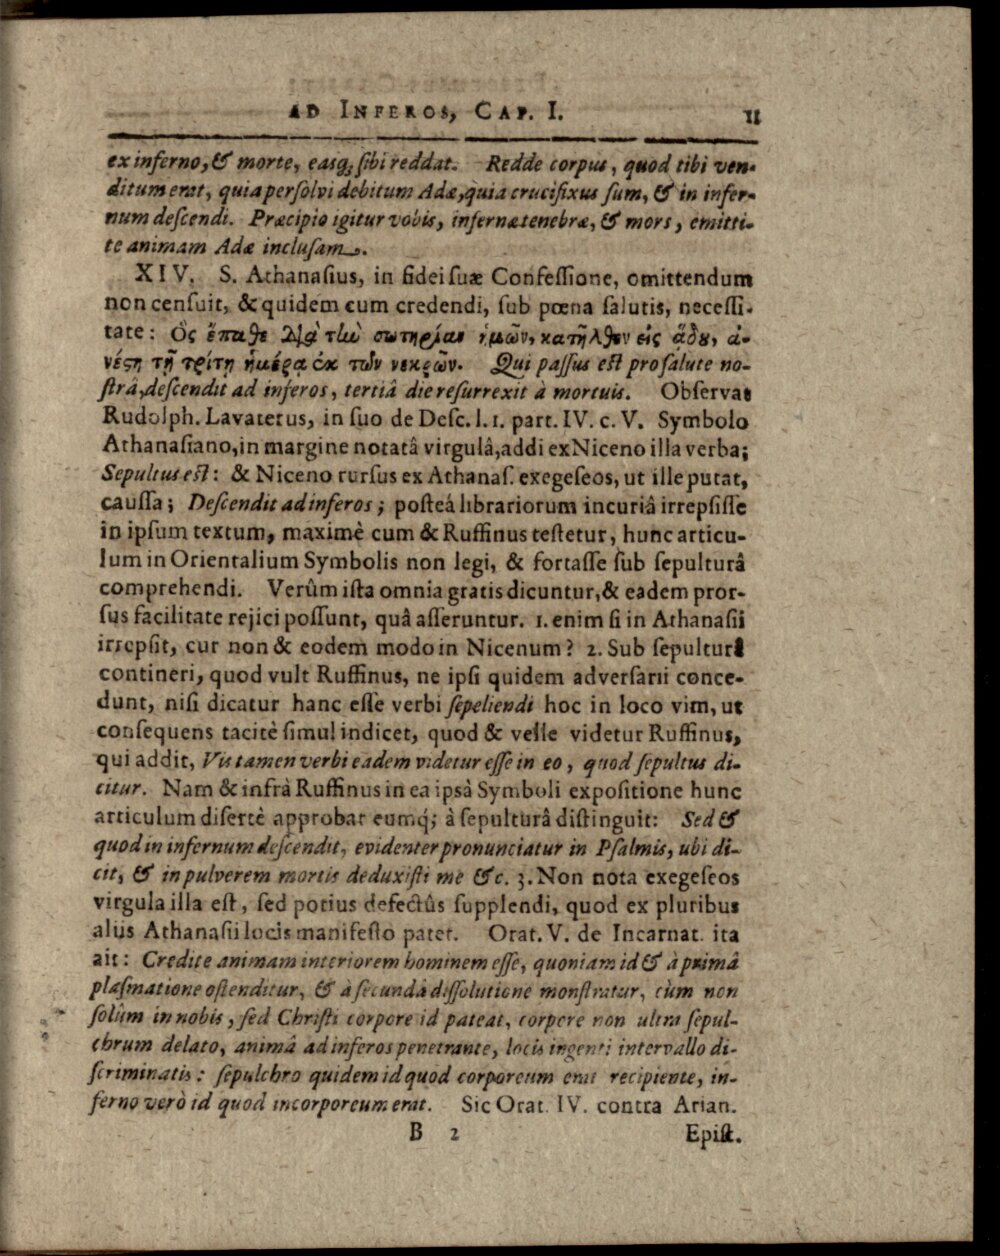 AD INFEROS, CAP. I. 11
ex inferno, & morte, easq; sibi reddat. Redde corpus, quod tibi ven-
ditum erat, quia persolvi debitum Adæ, quia crucifixus sum, & in infer-
num descendi. Præcipio igitur vobis, infernæ tenebræ, & mors, emitti-
te animam Adæ inclusam.
XIV. S. Athanasius, in fidei suæ Confessione, omittendum
non censuit, & quidem cum credendi, sub pœna salutis, necessi-
tate: Ὃς ἔπαθε διὰ τὴν σωτηρίαν ἡμῶν, κατῆλθεν εἰς ᾅδου, ἀ-
νέστη τῇ τρίτῃ ἡμέρᾳ ἐκ τῶν νεκρῶν. Qui passus est pro salute no-
strâ, descendit ad inferos, tertiâ die resurrexit à mortuis. Observat
Rudolph. Lavaterus, in suo de Desc. l. 1. part. IV. c. V. Symbolo
Athanasiano, in margine notatâ virgulâ, addi ex Niceno illa verba;
Sepultus est: & Niceno rursus ex Athanas. exegeseos, ut ille putat,
caussa; Descendit ad inferos; posteá librariorum incuriâ irrepsisse
in ipsum textum, maximè cum & Ruffinus testetur, hunc articu-
lum in Orientalium Symbolis non legi, & fortasse sub sepulturâ
comprehendi. Verûm ista omnia gratis dicuntur, & eadem pror-
sus facilitate rejici possunt, quâ asseruntur. 1. enim si in Athanasii
irrepsit, cur non & eodem modo in Nicenum? 2. Sub sepulturâ
contineri, quod vult Ruffinus, ne ipsi quidem adversarii conce-
dunt, nisi dicatur hanc esse verbi sepeliendi hoc in loco vim, ut
consequens tacitè simul indicet, quod & velle videtur Ruffinus,
qui addit, Vis tamen verbi eadem videtur esse in eo, quod sepultus di-
citur. Nam & infrà Ruffinus in ea ipsâ Symboli expositione hunc
articulum disertè approbat eumq́; à sepulturâ distinguit: Sed &
quod in infernum descendit, evidenter pronunciatur in Psalmis, ubi di-
cit, & in pulverem mortis deduxisti me &c. 3. Non nota exegeseos
virgula illa est, sed potius defectûs supplendi, quod ex pluribus
aliis Athanasii locis manifesto patet. Orat. V. de Incarnat. ita
ait: Credite animam interiorem hominem esse, quoniam id & à primâ
plasmatione ostenditur, & à secundâ dissolutione monstratur, cùm non
solùm in nobis, sed Christi corpore id pateat, corpore non ultra sepul-
chrum delato, animâ ad inferos penetrante, locis ingenti intervallo di-
scriminatis: sepulchro quidem id quod corporeum erat recipiente, in-
ferno verò id quod incorporeum erat. Sic Orat. IV. contra Arian.
B 2 Epist.